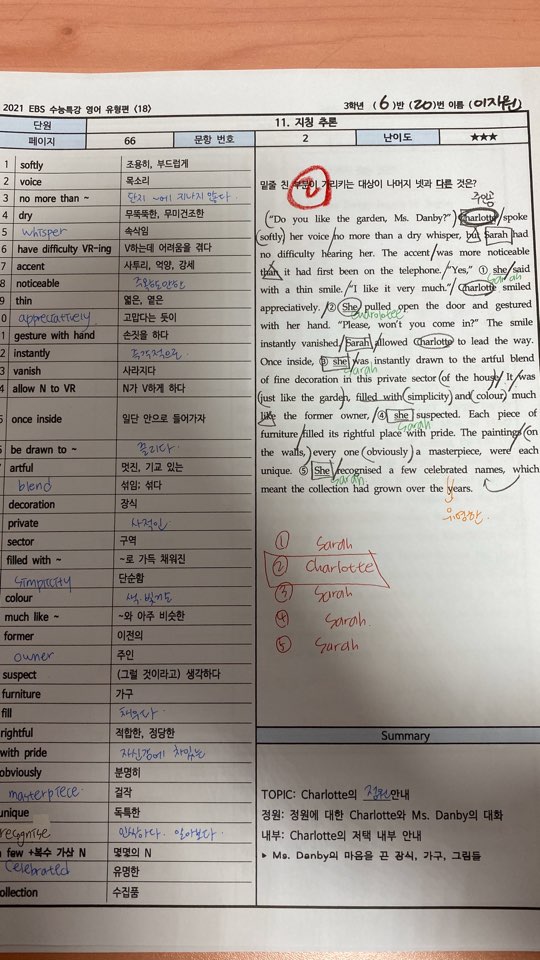 2021 EBS 수능특강 영어 유형편 <18>
3학년 (6)반 (20)번 이름 (이지원)
단원 11. 지칭 추론
페이지 66 문항 번호 2 난이도 ★★★
1 softly 조용히, 부드럽게
2 voice 목소리
3 no more than ~ 단지 ~에 지나지 않다.
4 dry 무뚝뚝한, 무미건조한
5 whisper 속삭임
6 have difficulty VR-ing V하는데 어려움을 겪다
7 accent 사투리, 억양, 강세
8 noticeable
9 thin 엷은, 옅은
0 appreciatively. 고맙다는 듯이
1 gesture with hand 손짓을 하다
2 instantly 즉각적으로.
3 vanish 사라지다
4 allow N to VR N가 V하게 하다
5 once inside 일단 안으로 들어가자
be drawn to ~ 끌리다.
7 artful 멋진, 기교 있는
blend 섞임; 섞다
decoration 장식
private 사적인.
sector 구역
filled with ~ ~로 가득 채워진
simplicity 단순함
colour 색. 빛깔
much like ~ ~와 아주 비슷한
former 이전의
owner 주인
suspect (그럴 것이라고) 생각하다
furniture 가구
fill 채우다.
rightful 적합한, 정당한
with pride 자신감에 차있는
obviously 분명히
masterpiece. 걸작
unique 독특한
recognise 인식하다. 알아보다.
few +복수 가산 N 몇몇의 N
celebrated 유명한
ollection 수집품
2
밑줄 친 부분이 가리키는 대상이 나머지 넷과 다른 것은?
주인공
"Do you like the garden, Ms. Danby?" Charlotte spoke
softly, her voice no more than a dry whisper, but Sarah had
no difficulty hearing her. The accent was more noticeable
than it had first been on the telephone. "Yes," ① she said
Sarah
with a thin smile. "I like it very much." Charlotte smiled
appreciatively. ② She pulled open the door and gestured
Charlotte
with her hand. "Please, won't you come in?" The smile
instantly vanished. Sarah allowed Charlotte to lead the way.
Once inside, ③ she was instantly drawn to the artful blend
Sarah
of fine decoration in this private sector of the house. It was
just like the garden, filled with simplicity and colour, much
like the former owner, ④ she suspected. Each piece of
Sarah
furniture filled its rightful place with pride. The paintings on
the walls, every one obviously a masterpiece, were each
unique. ⑤ She recognised a few celebrated names, which
Sarah
meant the collection had grown over the years.
유명한.
① Sarah
② Charlotte
③ Sarah
④ Sarah
⑤ Sarah
Summary
TOPIC: Charlotte의 정원안내
정원: 정원에 대한 Charlotte와 Ms. Danby의 대화
내부: Charlotte의 저택 내부 안내
▶ Ms. Danby의 마음을 끈 장식, 가구, 그림들